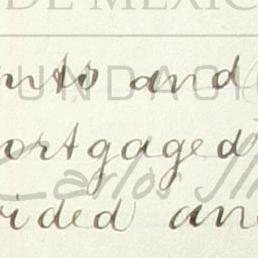 DE MÉXIC
nts and
UNDACIÓ
ortgaged
Carlos Sli
ided an